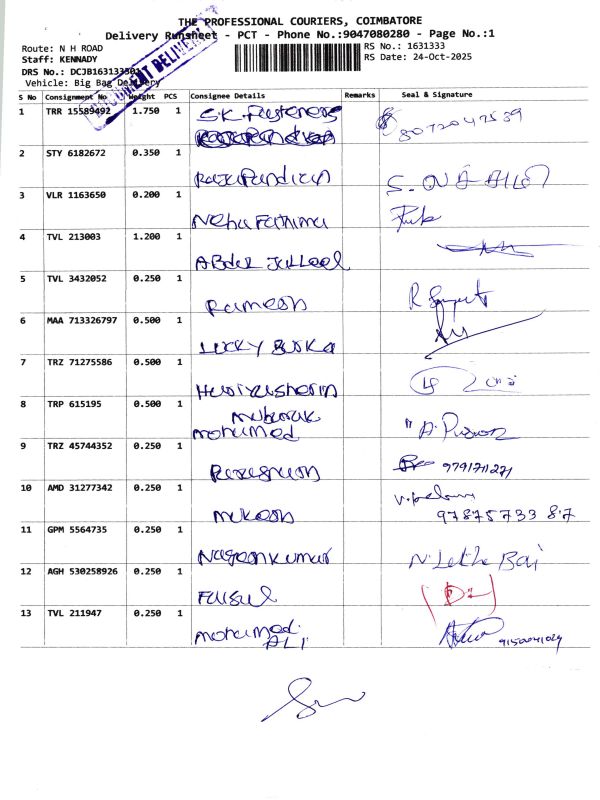 THE PROFESSIONAL COURIERS, COIMBATORE
Delivery Runsheet - PCT - Phone No.:9047080280 - Page No.:1
Route: N H ROAD
RS No.: 1631333
Staff: KENNADY
RS Date: 24-Oct-2025
DRS No.: DCJB163133301
Vehicle: Big Bag Delivery
S No Consignment No Weight PCS Consignee Details Remarks Seal & Signature
1 TRR 15589492 1.750 1 S.K. Fasteners 8072047539
2 STY 6182672 0.350 1 Rajapandiyan
3 VLR 1163650 0.200 1 Neha Fathima
4 TVL 213003 1.200 1 ABdul Jalleel
5 TVL 3432052 0.250 1 Ramesh
6 MAA 713326797 0.500 1 Lucky Buska
7 TRZ 71275586 0.500 1
8 TRP 615195 0.500 1 mubarak
mohamed
9 TRZ 45744352 0.250 1 9791711271
10 AMD 31277342 0.250 1 mukesh 9787573387
11 GPM 5564735 0.250 1 Nageshkumar
12 AGH 530258926 0.250 1 Faisul
13 TVL 211947 0.250 1 mohamed. 9150041029
ALI